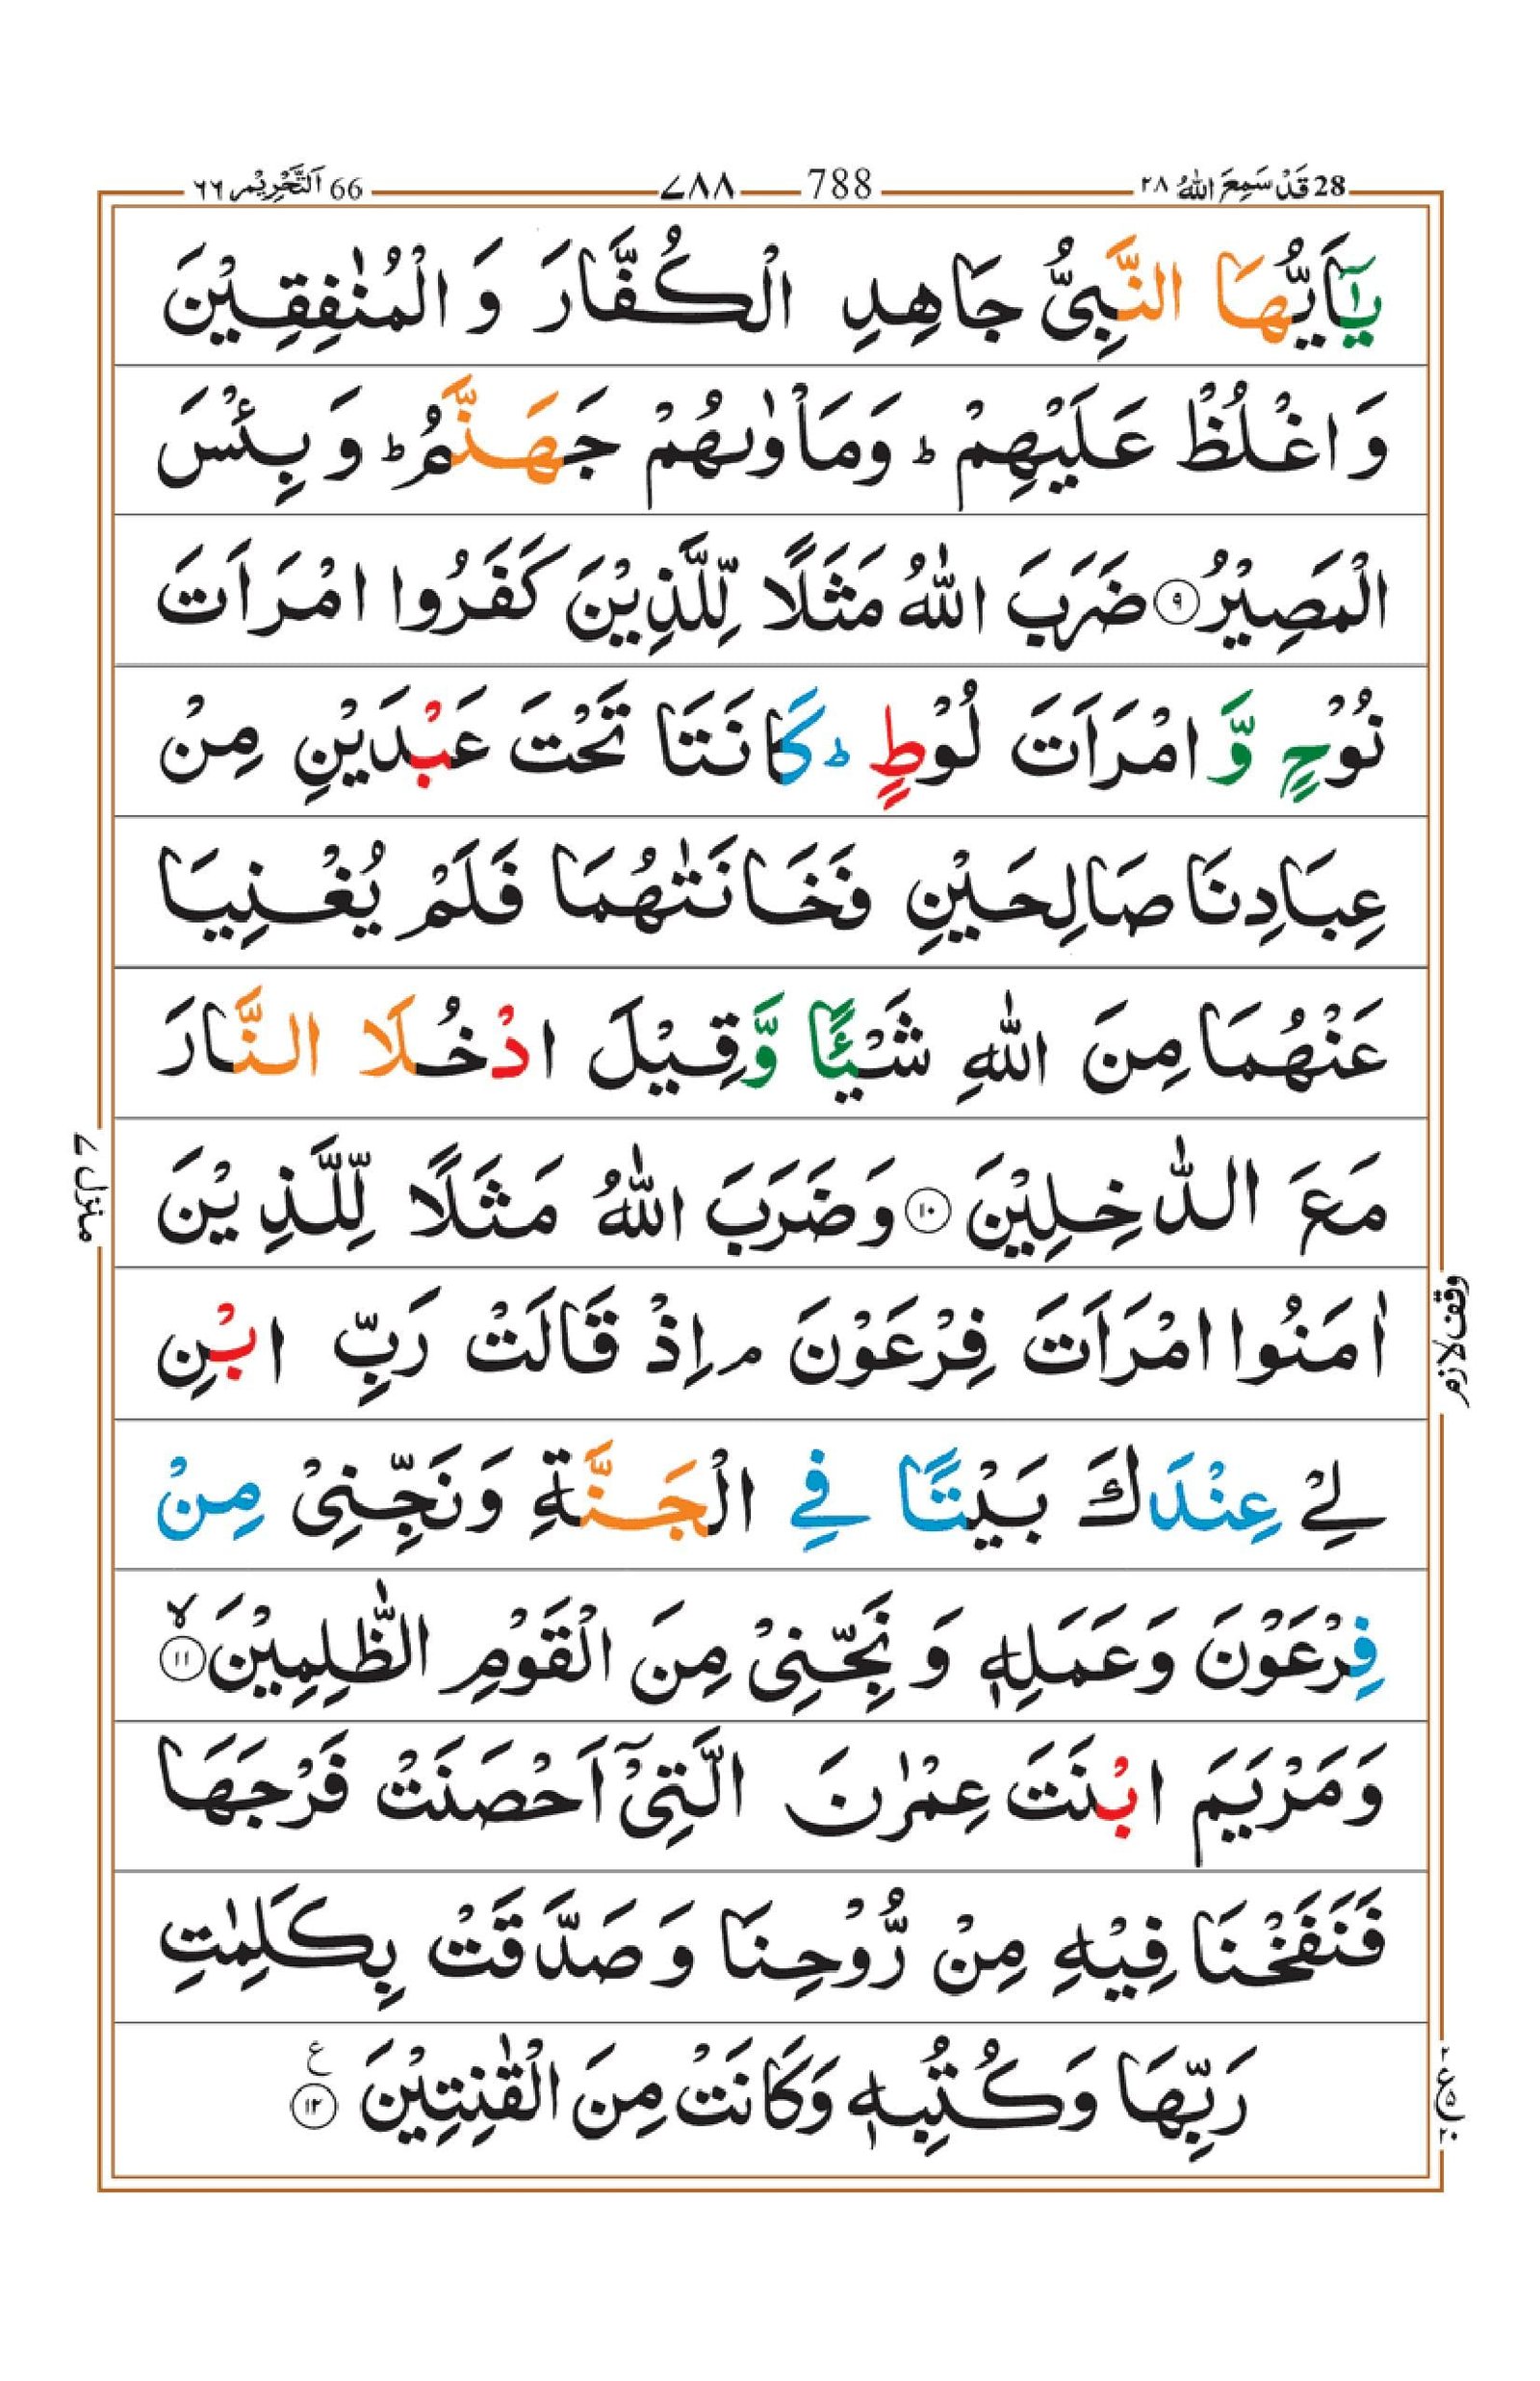 28 قَدْ سَمِعَ اللهُ ٢٨ 788 ٧٨٨ 66 اَلتَّحْرِيْم ٦٦
يٰۤاَيُّهَا النَّبِىُّ جَاهِدِ الْكُفَّارَ وَ الْمُنٰفِقِيْنَ
وَاغْلُظْ عَلَيْهِمْ ؕ وَمَاْوٰىهُمْ جَهَنَّمُ ؕ وَ بِئْسَ
الْمَصِيْرُ ۹ ضَرَبَ اللّٰهُ مَثَلًا لِّلَّذِيْنَ كَفَرُوا امْرَاَتَ
نُوْحٍ وَّ امْرَاَتَ لُوْطٍ ؕ كَانَتَا تَحْتَ عَبْدَيْنِ مِنْ
عِبَادِنَا صَالِحَيْنِ فَخَانَتٰهُمَا فَلَمْ يُغْنِيَا
عَنْهُمَا مِنَ اللّٰهِ شَيْـًٔا وَّقِيْلَ ادْخُلَا النَّارَ
مَعَ الدّٰخِلِيْنَ ۱۰ وَضَرَبَ اللّٰهُ مَثَلًا لِّلَّذِيْنَ
اٰمَنُوا امْرَاَتَ فِرْعَوْنَ ۘ اِذْ قَالَتْ رَبِّ ابْنِ
لِىْ عِنْدَكَ بَيْتًا فِى الْجَنَّةِ وَنَجِّنِىْ مِنْ
فِرْعَوْنَ وَعَمَلِهٖ وَ نَجِّنِىْ مِنَ الْقَوْمِ الظّٰلِمِيْنَ ۙ ۱۱
وَمَرْيَمَ ابْنَتَ عِمْرٰنَ الَّتِىْۤ اَحْصَنَتْ فَرْجَهَا
فَنَفَخْنَا فِيْهِ مِنْ رُّوْحِنَا وَ صَدَّقَتْ بِكَلِمٰتِ
رَبِّهَا وَكُتُبِهٖ وَكَانَتْ مِنَ الْقٰنِتِيْنَ ۱۲ ع
منزل ٧
وقف لازم
٢ ع ٥ ٢٠